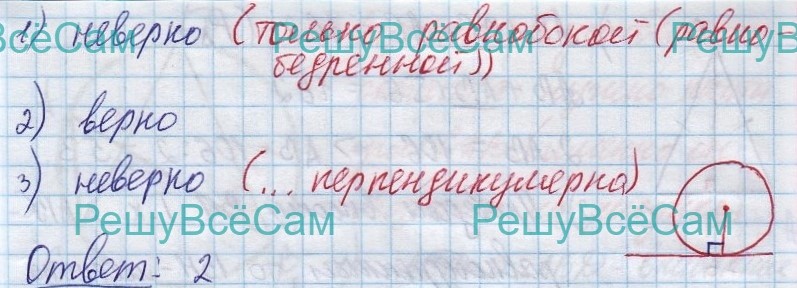 1) неверно (только равнобокой (равно-
бедренной))
РешуВсёСам РешуВсёСам РешуВсёСам
2) верно
3) неверно (... перпендикулярна)
РешуВсёСам РешуВсёСам
Ответ: 2